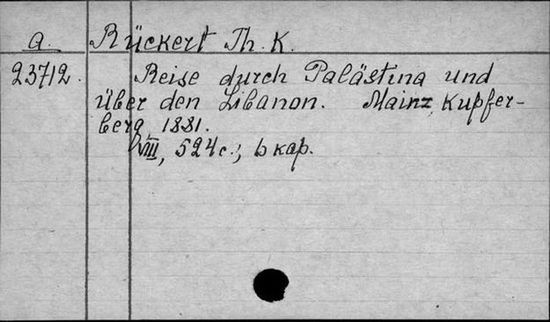 a. Rückert Th. K.
23712. Reise durch Palästina und
über den Libanon. Mainz, Kupfer-
berg, 1881.
VIII, 524 c.; 6 кар.